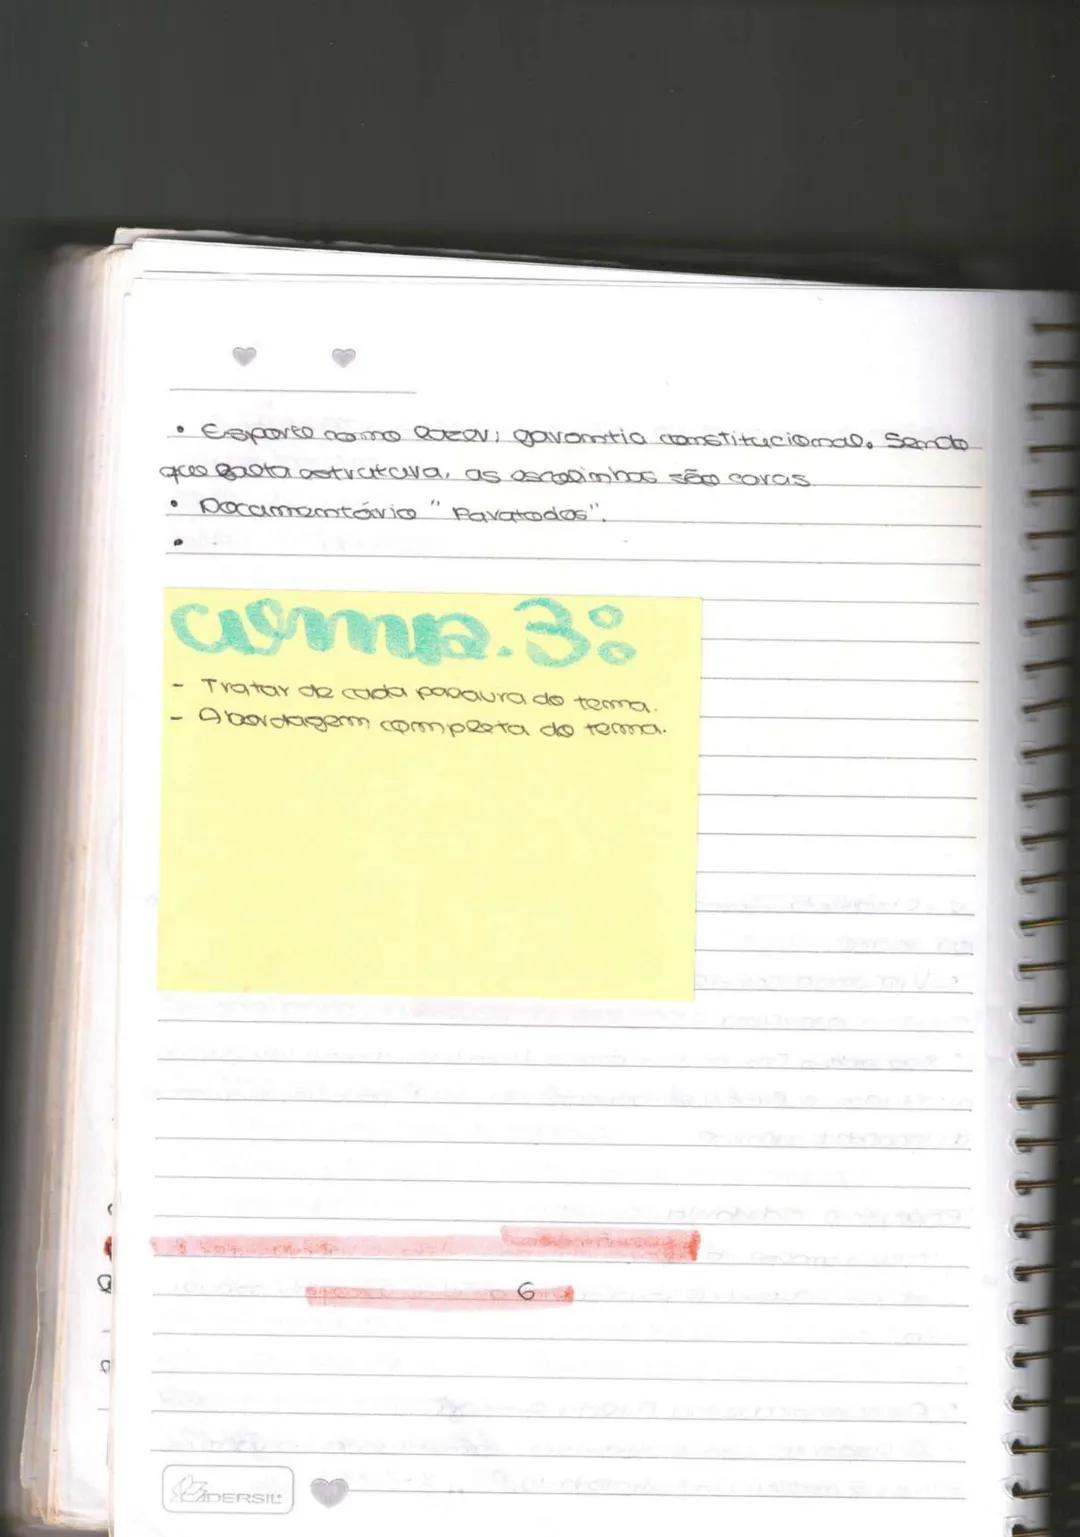 • Esporte como lazer; garantia constitucional. Sendo
que falta estrutura, as escolinhas são caras
• Documentário "Paratodos".
•
comp. 3:
- Tratar de cada palavra do tema.
- Abordagem completa do tema.
6
DERSIL